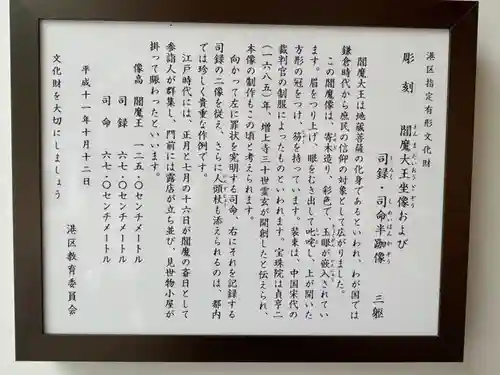 港区指定有形文化財
彫刻 閻魔大王坐像および
えんまだいおうざぞう
司録・司命半跏像 三躯
しろく しめいはんかぞう
閻魔大王は地蔵菩薩の化身であるといわれ、わが国では
鎌倉時代から庶民の信仰の対象として広がりました。
この閻魔像は、寄木造り、彩色で、玉眼が嵌入されてい
ます。眉をつり上げ、眼をむき出して叱咤し、上が開いた
方形の冠をつけ、笏を持っています。装束は、中国宋代の
裁判官の制服によったものといわれます。宝珠院は貞享二
(一六八五)年、増上寺三十世霊玄が開創したと伝えられ、
本像の制作もこの頃と考えられます。
向かって左に罪状を宣明する司命、右にそれを記録する
司録の二像を従え、さらに人頭杖も添えられるのは、都内
では珍しく貴重な作例です。
江戸時代には、正月と七月の十六日が閻魔の斎日として
参詣人が群集し、門前には露店が立ち並び、見世物小屋が
掛って賑わったといいます。
像高 閻魔王 一二五・〇センチメートル
司録 六七・〇センチメートル
司命 六七・〇センチメートル
平成十一年十月十二日
港区教育委員会
文化財を大切にしましょう